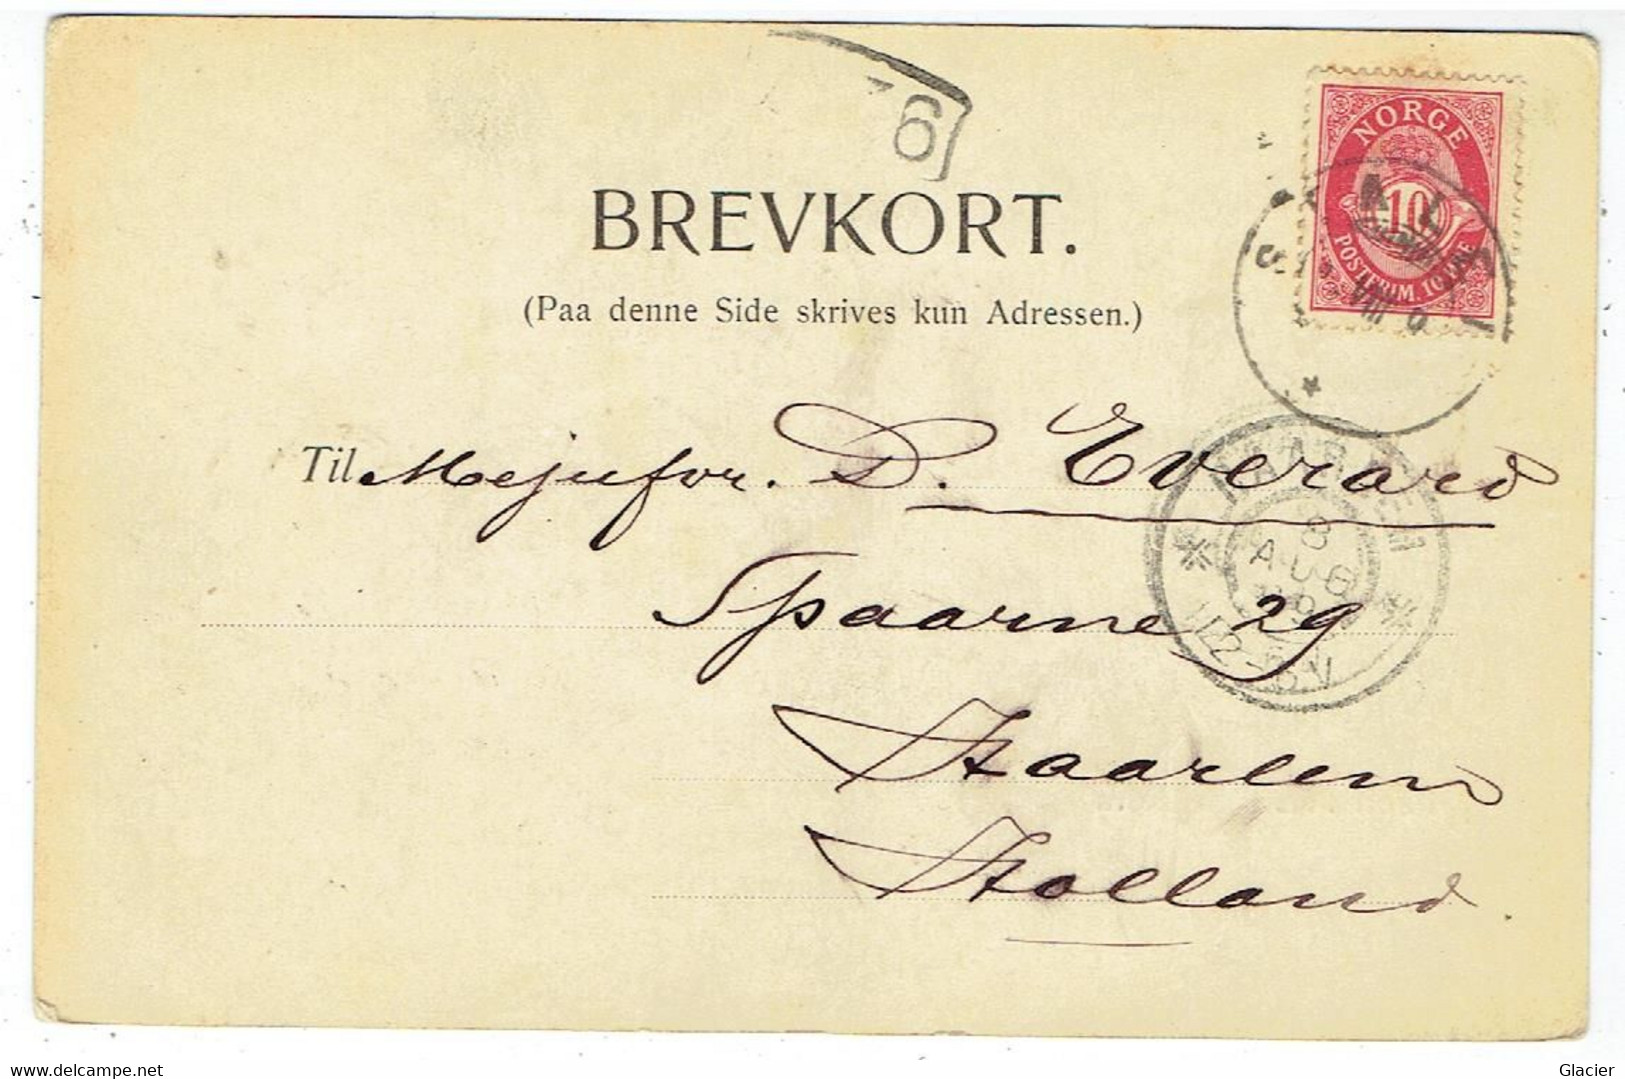 6
NORGE
10
POSTFRIM. 10 ØRE
BREVKORT.
(Paa denne Side skrives kun Adressen.)
Til Mejufvr. D. Everard
HAARLEM
8
AUG
12-5.V
Spaarne 29
Haarlem
Holland.
Glacier
delcampe.net